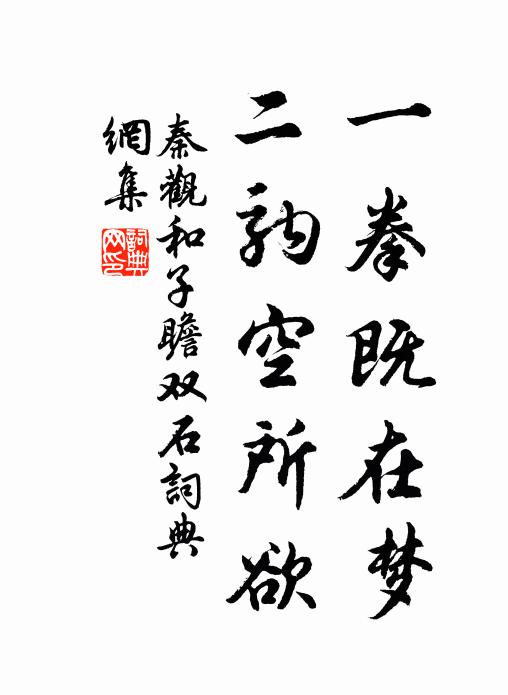 一拳既在梦
二驹空所欲
秦觀和子瞻双石詞典
網集
詞典
网印